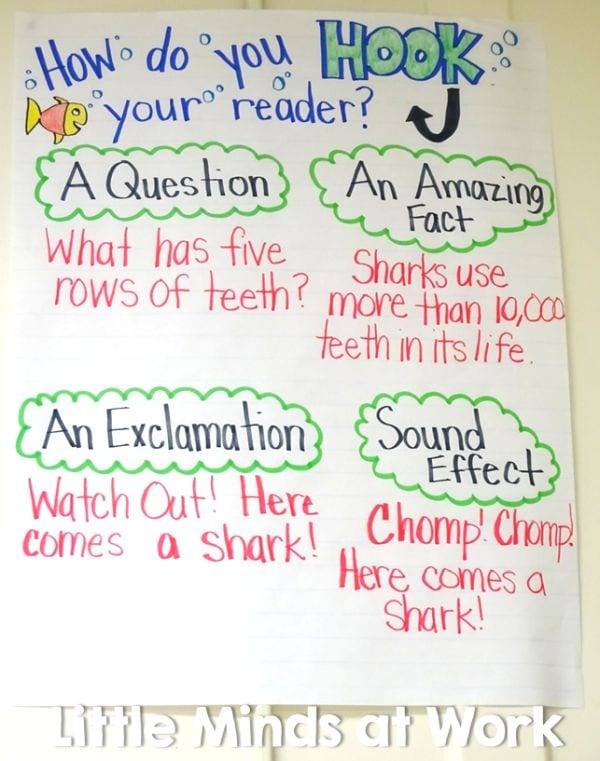 How do you HOOK
your reader?
A Question
What has five
rows of teeth?
An Amazing
Fact
Sharks use
more than 10,000
teeth in its life.
An Exclamation
Watch Out! Here
comes a shark!
Sound
Effect
Chomp! Chomp!
Here comes a
shark!
Little Minds at Work